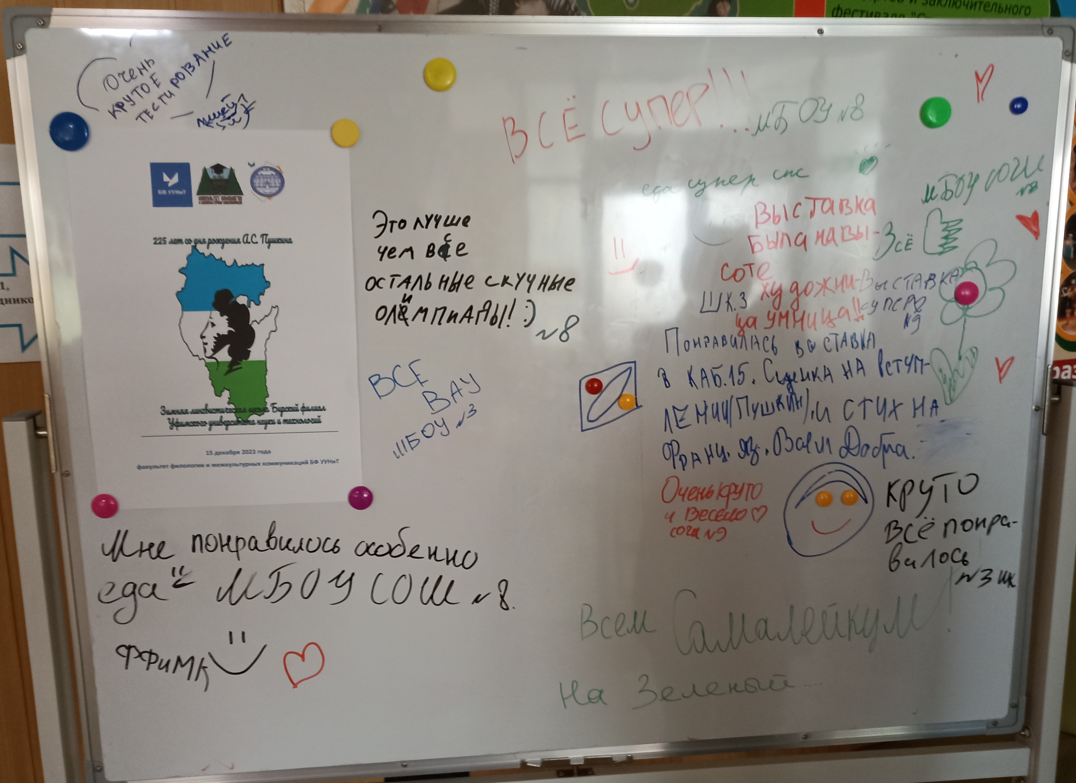 рство и заключительного
фестиваля
ОЧЕНЬ
КРУТОЕ
ТЕСТИРОВАНИЕ
БФ УУНиТ
225 лет со дня рождения А.С. Пушкина
Зимняя лингвистическая школа Бирский филиал
Уфимского университета науки и технологий
15 декабря 2023 года
факультет филологии и межкультурных коммуникаций БФ УУНиТ
Это лучше
чем все
остальные скучные
олимпиады! :)
№8
ВСЕ
ВАУ
МБОУ №3
Мне понравилось особенно
еда МБОУ СОШ №8.
ФФиМК
ВСЁ СУПЕР!!!
МБОУ №8
еда супер спс
МБОУ СОШ
№8
Всё
Выставка
была на вы-
соте
художни-
ца умница!!
ШК.3
Выставка
супер
№9
Понравилась выставка
в каб.15. Сценка на вступ-
лении(Пушкин), и стих на
франц. яз. Всем Добра.
Очень круто
и весело
сош №9
КРУТО
Всё понра-
вилось
№3 шк
Всем Самалейкум!
На Зеленый...